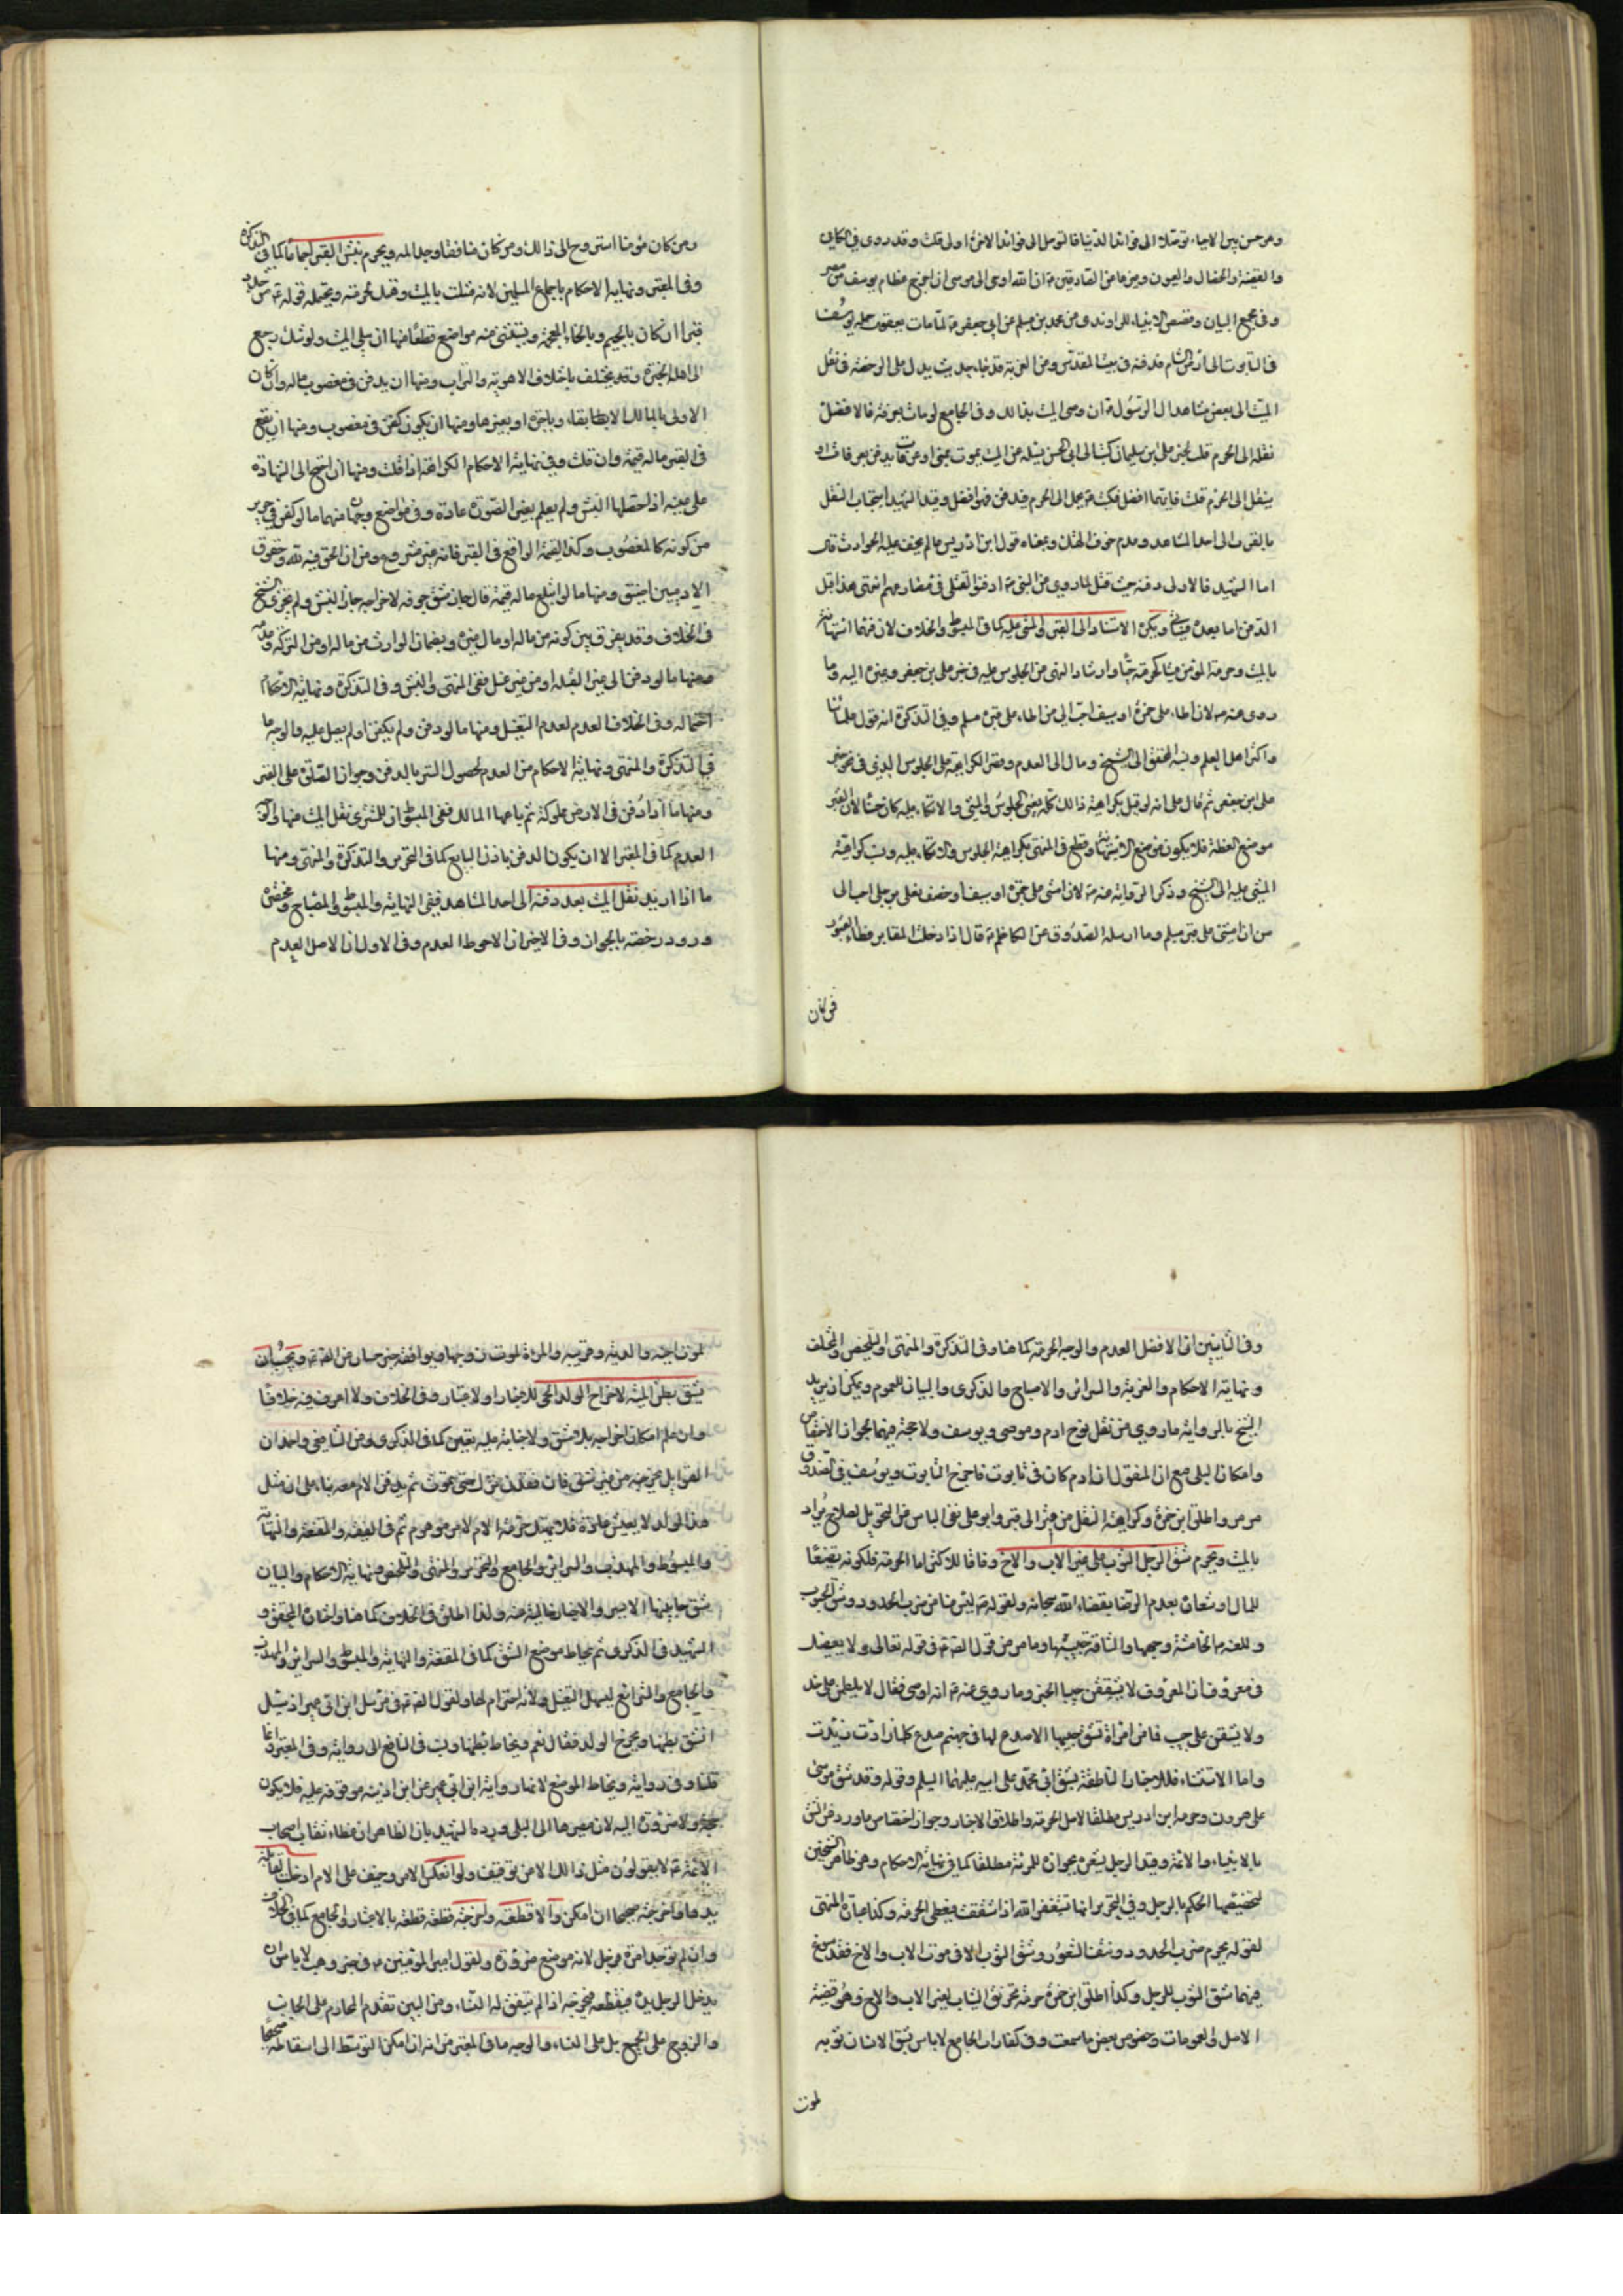 وهو حسن بين الاحياء توصلا الى فوائد الدنيا فالتوصل الى فوائد الاخرة اولى قلت وقد روى في الكافي
والفقيه والخصال والعيون وغيرها من الصادقين ع ان الله اوحى الى موسى ان اخرج عظام يوسف من مصر
وفي مجمع البيان وقصص الانبياء للراوندي عن محمد بن مسلم عن ابي جعفر ع لما مات يعقوب حمله يوسف
في التابوت الى ارض الشام فدفنه في بيت المقدس ومن الغرية قد جاء حديث يدل على الرخصة في نقل
الميت الى بعض مشاهد ال الرسول ع ان وصى الميت بذلك وفي الجامع لو مات بعرفة فالافضل
نقله الى الحرم قلت لخبر علي بن سليمان كتب الى ابي الحسن يسئله عن الميت يموت بمنى او عرفات يدفن بعرفات او
ينقل الى الحرم قلت فايهما افضل فكتب ع يحمل الى الحرم فيدفن فهو افضل وقيد الشهيد استحباب النقل
بالقرب الى احد المشاهد وعدم خوف الهتك ومعناه قول ابن ادريس ما لم يخف عليه الحوادث قال
اما الشهيد فالاولى دفنه حيث قتل لما روي عن النبي ص ادفنوا القتلى في مصارعهم انتهى هذا قبل
الدفن اما بعده فسياتي ويكره الاستناد الى القبر والمشي عليه كما في المبسوط والخلاف لان فيهما استهانة
بالميت وحرمة المؤمن ميتا كحرمته حيا وارشاد النهي عن الجلوس عليه في خبر علي بن جعفر وغيره اليه وما
روى عنه ص لان اطاء على جمرة او سيف احب الي من اطاء على قبر مسلم وفي التذكرة انه قول علمائنا
واكثر اهل العلم ونسبه المحقق الى الشيخ ومال الى العدم وقصر الكراهية على الجلوس الذي في نحو خبر
علي بن جعفر ثم قال على انه لو قيل بكراهية ذلك كله يعني الجلوس والمشي والاتكاء عليه كان حسنا لان القبر
موضع العظة فلا يكون موضع الاستهانة وقطع في المنتهى بكراهية الجلوس والاتكاء عليه ونسب كراهية
المشي عليه الى الشيخ وذكر الرواية عنه ص لان امشي على جمرة او سيف او خصف نعلي برجلي احب الي
من ان امشي على قبر مسلم وما ارسله الصدوق عن الكاظم ع قال اذا دخلت المقابر فطاء القبور
فمن كان
ومن كان مؤمنا استروح الى ذالك ومن كان منافقا وجد المه ويحرم نبش القبر اجماعا كما في التذكرة
وفي المعتبر ونهاية الاحكام باجماع المسلمين لانه مثلت بالميت وهتك لحرمته ويحتمله قوله ع من جدد
قبرا ان كان بالجيم وبالخاء المعجمة ويستثنى منه مواضع قطعا منها ان يبلى الميت ولو شك رجع
الى اهل الخبرة وقد يختلف باختلاف الاهوية والتراب ومنها ان يدفن في مغصوب ماله وان كان
الاولى بالمالك الابقاء وباجرة او بغيرها ومنها ان يكون كفن في مغصوب ومنها ان يقع
في القبر ماله قيمة وان قلت وفي نهاية الاحكام الكراهة اذا قلت ومنها ان احتج الى الشهادة
على عينه اذا حصلها النبش ولم يعلم تغير الصورة عادة وفي مواضع وجهان منهما ما لو كفن في حرير
من كونه كالمغصوب وكذا القيمة الواقع في القبر فانه غير مشروع ومن ان الحق فيه لله وحقوق
الادميين اضيق ومنها ما لو ابتلع ماله قيمة قال جاز شق جوفه لاخراجه جاز النبش ولم يجزه الشيخ
في الخلاف وقد يفرق بين كونه من ماله او مال غيره وبضمان الوارث من ماله او من التركة وعدمه
ومنها ما لو دفن الى غير القبلة او من غير غسل ففي المنتهى والنبش وفي التذكرة ونهاية الاحكام
احتماله وفي الخلاف العدم لعدم التغسيل ومنها ما لو دفن ولم يكفن او لم يصل عليه والوجه ما
في التذكرة والمنتهى ونهاية الاحكام من العدم لحصول الستر بالدفن وجواز الصلوة على القبر
ومنها ما اذا دفن في الارض مملوكة ثم باعها المالك ففي المبسوط ان للمشتري نقل الميت منها والوجه
العدم كما في المعتبر الا ان يكون الدفن باذن البايع كما في التحرير والتذكرة والمنتهى ومنها
ما اذا اريد نقل الميت بعد دفنه الى احد المشاهد ففي النهاية والمبسوط والمصباح ومختصره
ورود رخصة بالجواز وفي الاخيرين ان الاحوط العدم وفي الاول ان الاصل العدم
وفي الثانيين ان الافضل العدم والوجه الحرمة كما هنا وفي التذكرة والمنتهى والتلخيص والمختلف
ونهاية الاحكام والغرية والسرائر والاصباح والذكرى والبيان للعموم ويمكن ان يريد
الشيخ بالرواية ما روي من نقل نوح ادم وموسى ويوسف ولا حجة فيهما لجواز الاختصاص
وامكان البلى مع ان المنقول ان ادم كان في تابوت فاخرج التابوت ويوسف في الصندوق
مرمر واطلق ابن حمزة وكراهية النقل من قبر الى قبر وابو علي نفى الباس عن التحويل لصلاح يراد
بالميت ويحرم شق الرجل الثوب على غير الاب والاخ وفاقا للاكثر اما الحرمة فلكونه تضييعا
للمال واشعاره بعدم الرضا بقضاء الله سبحانه ولقوله ص ليس منا من ضرب الخدود وشق الجيوب
ولعنه ص الخامشة وجهها والشاقة جيبها وما مر من قول الصادق ع في قوله تعالى ولا يعصينك
في معروف ان المعروف لا يشققن جيبا الخبر وما روي عنه ع انه اوصى فقال لا يلطمن علي خد
ولا يشقن علي جيب فما من امراة تشق جيبها الا صدع لها في جهنم صدع كلما زادت زيدت
واما الاستثناء فللاخبار الناطقة بشق ابي محمد على ابيه عليهما السلم وقوله وقد شق موسى
على هرون وحرمه ابن ادريس مطلقا لاصل الحرمة واطلاق الاخبار وجواز اختصاص ما ورد من الشق
بالانبياء والائمة وقيد الرجل يشعر بجوازه للمرئة مطلقا كما في نهاية الاحكام وهو ظاهر الشيخين
لتخصيصهما الحكم بالرجل وفي التحرير انها تستغفر الله اذا شقت فيعطى الحرمة وكذا عبارة المنتهى
لقوله يحرم ضرب الخدود ونتف الشعور وشق الثوب الا في موت الاب والاخ فقد سوغ
فيهما شق الثوب للرجل وكذا اطلق ابن حمزة حرمة تخريق الثياب لغير الاب والاخ وهو قضية
الاصل والعمومات وخصوص بعض ما سمعت وفي كفارات الجامع لا باس بشق الانسان ثوبه
لموت
لموت اخيه والديه وقريبه والمرئة لموت زوجها ويوافقه خبر حنان عن الصادق ع ويجب ان
يشق بطن الميتة لاخراج الولد الحي للاخبار والاعتبار وفي الخلاف ولا اعرف فيه خلافا
وان علم امكان اخراجه بلا شق ولا جناية عليه يتعين كما في الذكرى وعن الشافعي واحمد ان
القوابل يخرجنه من غير شق فان فقدن ترك حتى يموت ثم يدفن الام معه بناء على ان مثل
هذا الولد لا يعيش عادة فلا يهتك حرمة الام لامر موهوم ثم في الفقيه والمقنعة والنهاية
والمبسوط والمهذب والسرائر والجامع والتحرير والمنتهى والتلخيص ونهاية الاحكام والبيان
شق جانبها الايسر والاخبار خالية عنه ولذا اطلق في الخلاف كما هنا واختاره المحقق و
الشهيد في الذكرى ثم يخاط موضع الشق كما في المقنعة والنهاية والمبسوط والسرائر والمهذب
والجامع والشرائع ليسهل التغسيل ولانه احترام لها ولقول الصادق ع في مرسل ابن ابي عمير اذ سئل
ايشق بطنها ويخرج الولد فقال نعم ويخاط بطنها ونسب في النافع الى رواية وفي المعتبر انما
قلنا وفي رواية ويخاط الموضع لانها رواية ابن ابي عمير عن ابن اذينة موقوفة عليه فلا يكون
حجة ولا ضرورة اليه لان مصيرها الى البلى ورده الشهيد بان الظاهر ان عظماء ثقات اصحاب
الائمة ع لا يقولون مثل ذالك الا من توقيف ولو انعكس الامر وخيف على الام ادخلت القابلة
يدها واخرجته صحيحا ان امكن والا قطعته واخرجته قطعة قطعة بالاخبار والجامع كما في الخلاف
وان لم يوجد امرئة فرجل لانه موضع ضرورة ولقول امير المؤمنين ع في خبر وهب لا باس ان
يدخل الرجل يده فيقطعه فيخرجه اذا لم يتفق له النساء ومن البين تقدم المحارم على الاجانب
والزوج على الجميع بل على النساء والوجه ما في المعتبر من انه ان امكن التوسط الى اسقاطه صحيحا